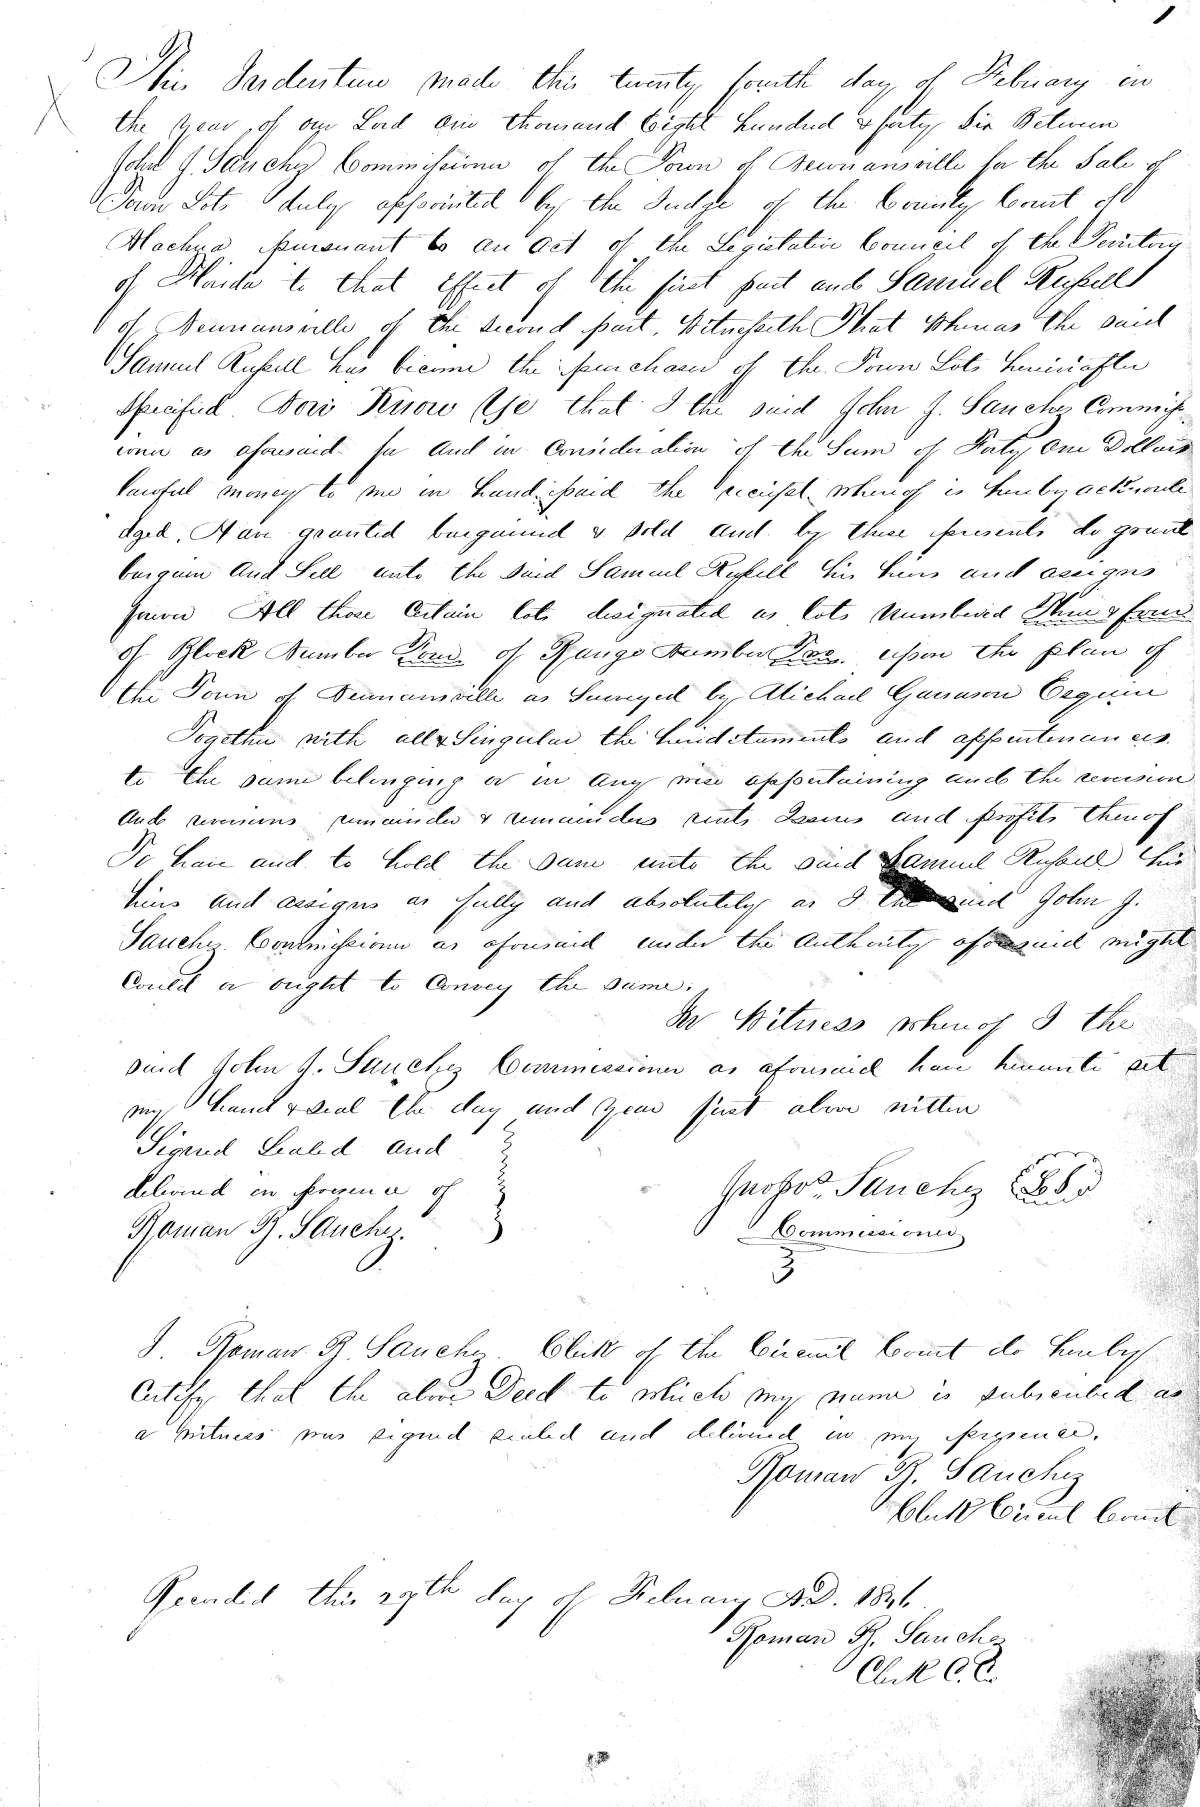 1
This Indenture made this twenty fourth day of February in
the year of our Lord one thousand Eight hundred & forty Six Between
John J. Sanchez Commissioner of the Town of Newnansville for the Sale of
Town Lots duly appointed by the Judge of the County Court of
Alachua pursuant to an act of the Legislative Council of the Territory
of Florida to that Effect of the first part and Samuel Russell
of Newnansville of the second part. Witnesseth That Whereas the said
Samuel Russell has become the purchaser of the Town Lots hereinafter
specified. Now Know Ye that I the said John J. Sanchez Commiss
ioner as aforesaid for and in Consideration of the Sum of Forty One Dollars
lawful money to me in hand paid the receipt whereof is hereby acknowle
dged, Have granted bargained & sold and by these presents do grant
bargain and Sell unto the said Samuel Russell his heirs and assigns
forever All those Certain lots designated as lots numbered Three & four
of Block Number Four of Range Number Two upon the plan of
the Town of Newnansville as Surveyed by Michael Garrason Esquire
Together with all & Singular the hereditaments and appurtenances
to the same belonging or in any wise appertaining and the reversion
and reversions remainder & remainders rents Issues and profits thereof
To have and to hold the same unto the said Samuel Russell his
heirs and assigns as fully and absolutely as I the said John J.
Sanchez Commissioner as aforesaid under the authority aforesaid might
Could or ought to Convey the same.
In Witness whereof I the
said John J. Sanchez Commissioner as aforesaid have hereunto set
my hand & seal the day and year first above written
Signed Sealed and
delivered in presence of
Jno Sanchez LS
Roman R. Sanchez.
Commissioner
I. Roman R. Sanchez. Clerk of the Circuit Court do hereby
Certify that the above Deed to which my name is subscribed as
a witness was signed sealed and delivered in my presence.
Roman R. Sanchez
Clerk Circuit Court
Recorded this 27th day of February A.D. 1846
Roman R. Sanchez
Clerk C.C.